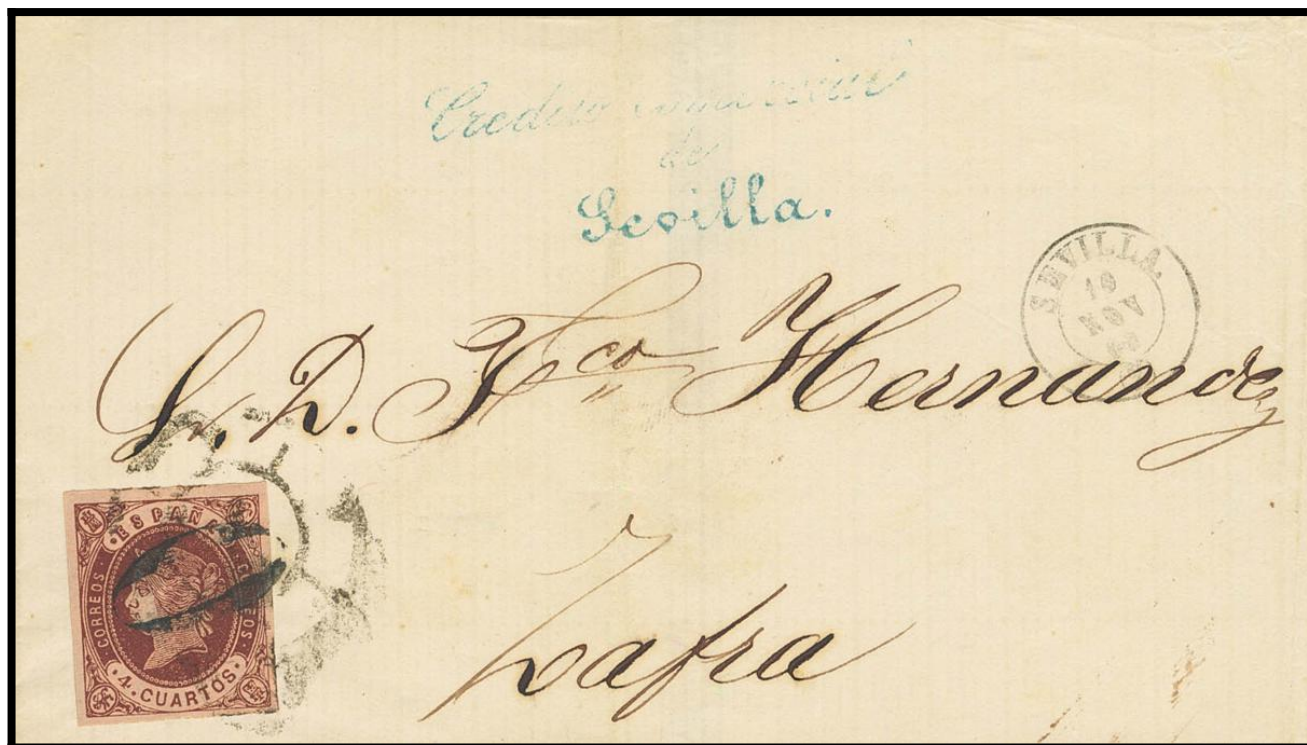 Credito Comercial
de
Sevilla.
SEVILLA.
NOV
Sr. D. Fco Hernandez
Zafra
ESPAÑA
CORREOS
CORREOS
4 CUARTOS